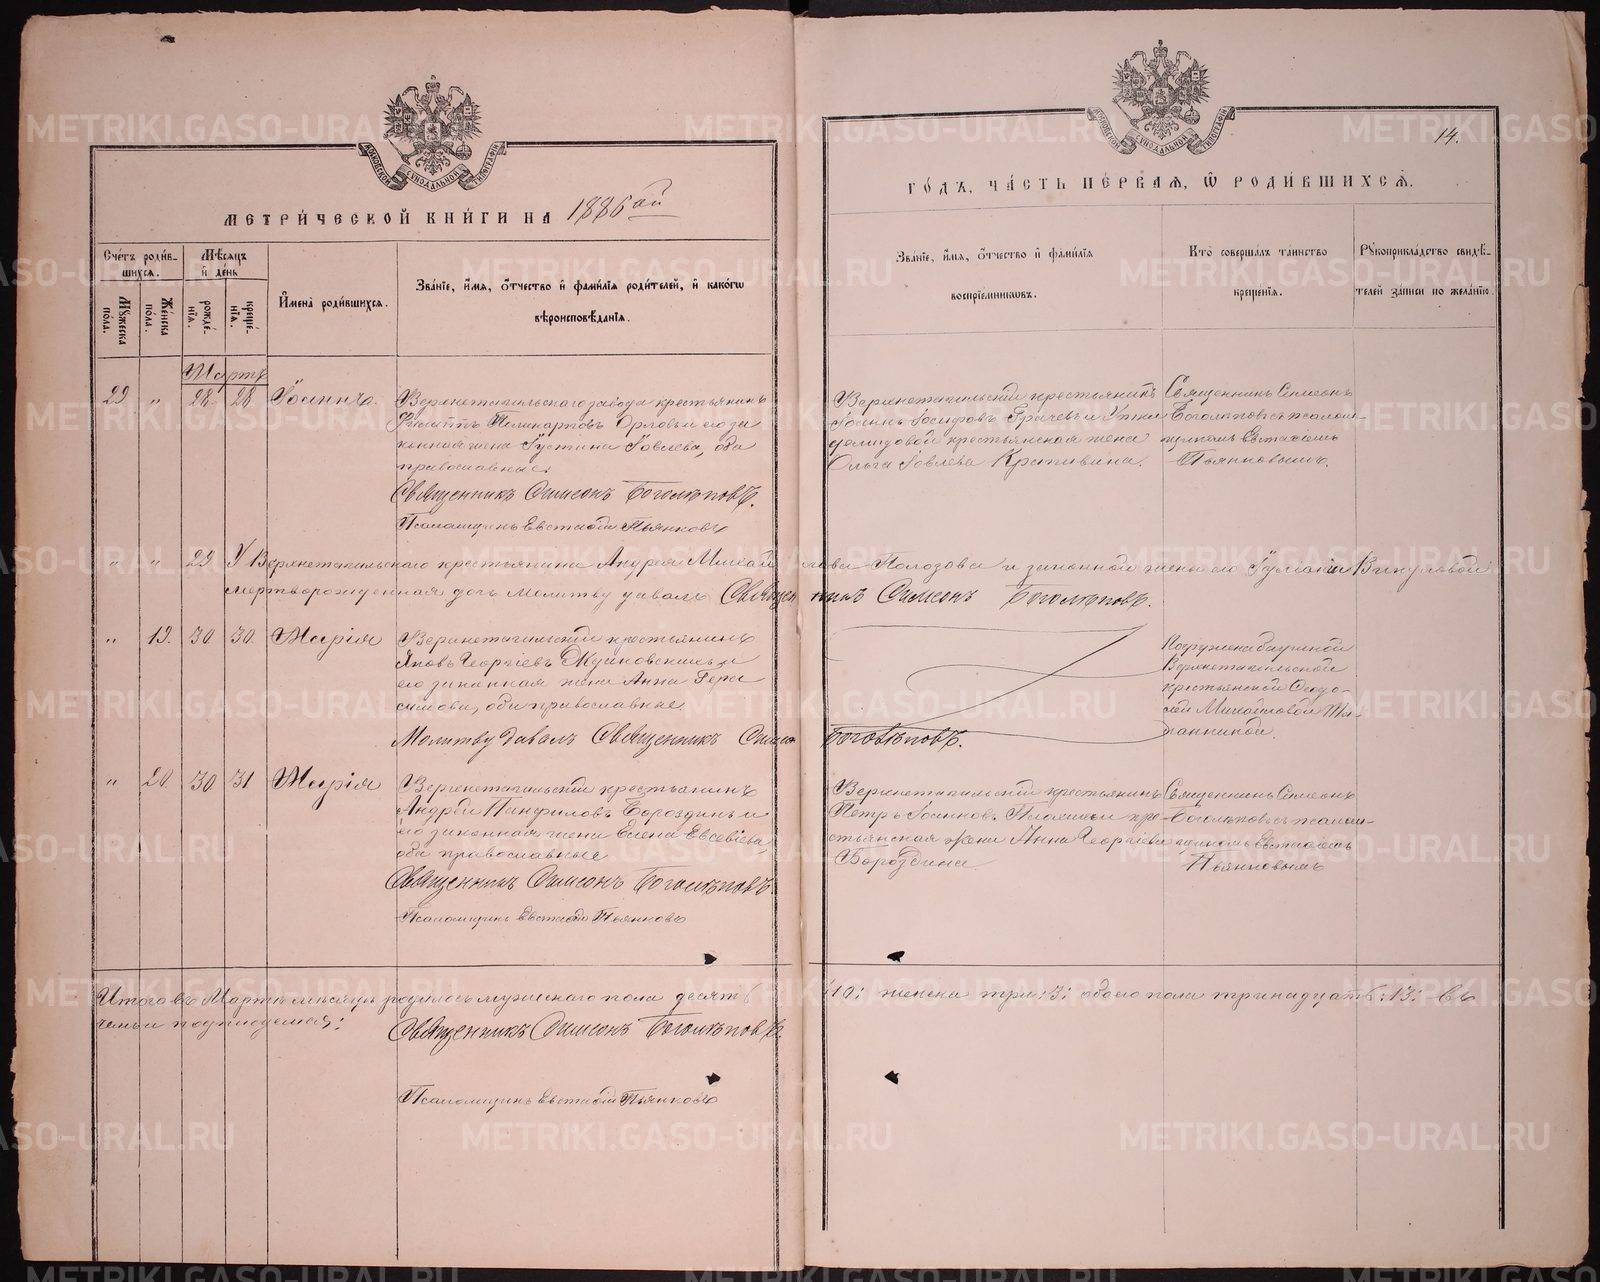 МЕТРИ́ЧЕСКОЙ КНИ́ГИ НА 1886ой
Сче́тъ роди́в-
шихся.
Мѣ́сяцъ
и҆ де́нь
Мꙋ́жеска
по́ла.
Же́нска
по́ла.
рожде́-
нїѧ.
креще́-
нїѧ.
И҆мена̀ роди́вшихся.
Зва́нїе, и҆́мя, ѻ҆́тчество и҆ фамѝлїѧ роди́телей, и҆ како́гѡ
вѣроисповѣ́данїѧ.
Мартъ
22 " 28 28 Іоаннъ.
Верхнетагильскаго завода крестьянинъ
Филиппъ Поликарповъ Орловъ и его за
конная жена Іустина Іовлева, оба
православные.
Священникъ Симеонъ Боголѣповъ.
Псаломщикъ Евстафій Пьянковъ
" " 29 У Верхнетагильскаго крестьянина Андрея Михайлова Полозова и законной жены его Іуліаніи Викуловой
мертворожденная дочь Молитву давалъ Священникъ Симеонъ Боголѣповъ.
" 19. 30 30. Марія
Верхнетагильскій крестьянинъ
Яковъ Георгіевъ и
его законная жена Анна Гера
симова, оба православные
Молитву давалъ Священникъ Симеонъ Боголѣповъ.
" 20. 30 31 Марія
Верхнетагильскій крестьянинъ
Андрей Панфиловъ Бороздинъ и
его законная жена Елена Евсевіева,
оба православные
Священникъ Симеонъ Боголѣповъ.
Псаломщикъ Евстафій Пьянковъ
Итого въ Мартѣ мѣсяцѣ родилось мужескаго пола десять :10: женска три :3: обоего пола тринадцать :13: въ
чемъ и подписуемся:
Священникъ Симеонъ Боголѣповъ.
Псаломщикъ Евстафій Пьянковъ
14.
ГО́ДЪ, ЧА́СТЬ ПЕ́РВАѦ, Ѡ҆ РОДИ́ВШИХСѦ.
Зва́нїе, и҆́мя, ѻ҆́тчество и҆ фамѝлїѧ
воспрїе́мниковъ.
Кто̀ соверша́лъ та́инство
креще́нїѧ.
Рꙋкоприкла́дство свидѣ́-
телей за́писи по жела́нїю.
Верхнетагильскій крестьянинъ
Іоаннъ Іосифовъ Грачевъ и Утки
демидовой крестьянская жена
Ольга Іовлева Крапивина.
Священникъ Симеонъ
Боголѣповъ съ псалом-
щикомъ Евстафіемъ
Пьянковымъ.
Погружена бабушкой
Верхнетагильской
крестьянской Ѳеодо-
сіей Михайловой
Верхнетагильскій крестьянинъ
Петръ Іоанновъ и кре-
стьянская жена Анна Георгіева
Бороздина
Священникъ Симеонъ
Боголѣповъ съ псалом-
щикомъ Евстафіемъ
Пьянковымъ
METRIKI.GASO-URAL.RU